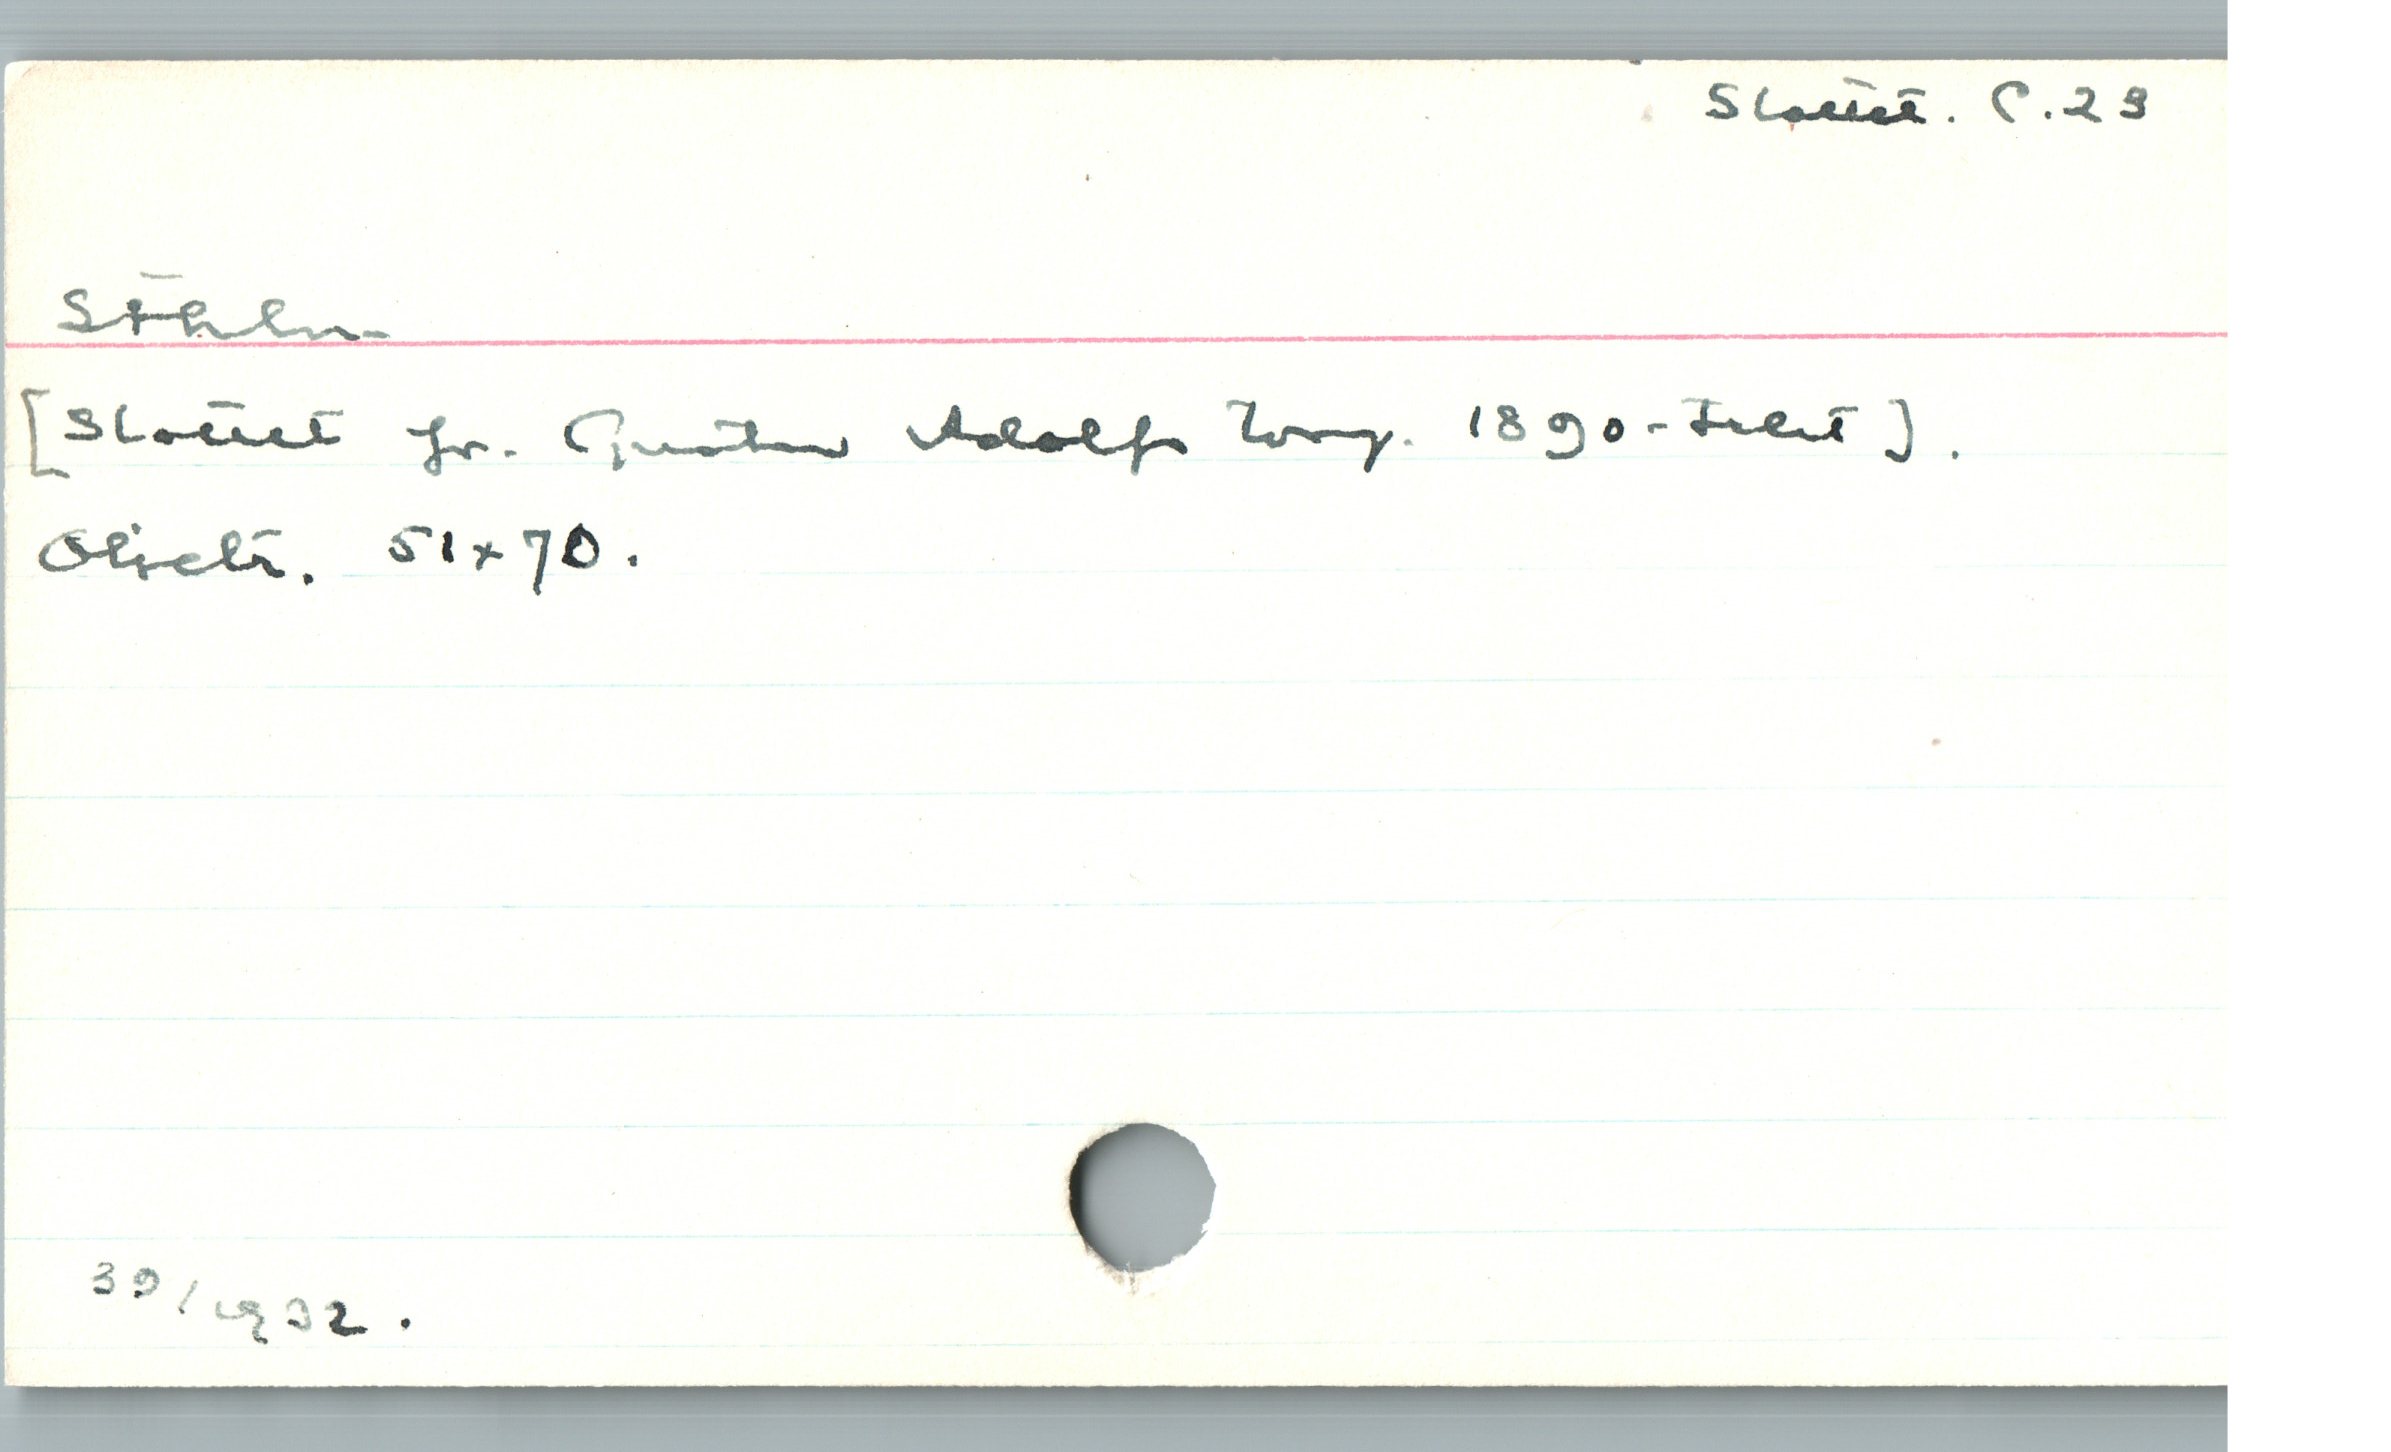 Slottet. C.23
Ståhln
[Slottet fr. Gustav Adolfs torg. 1890-talet].
Oljetr. 51x70.
39/1932.